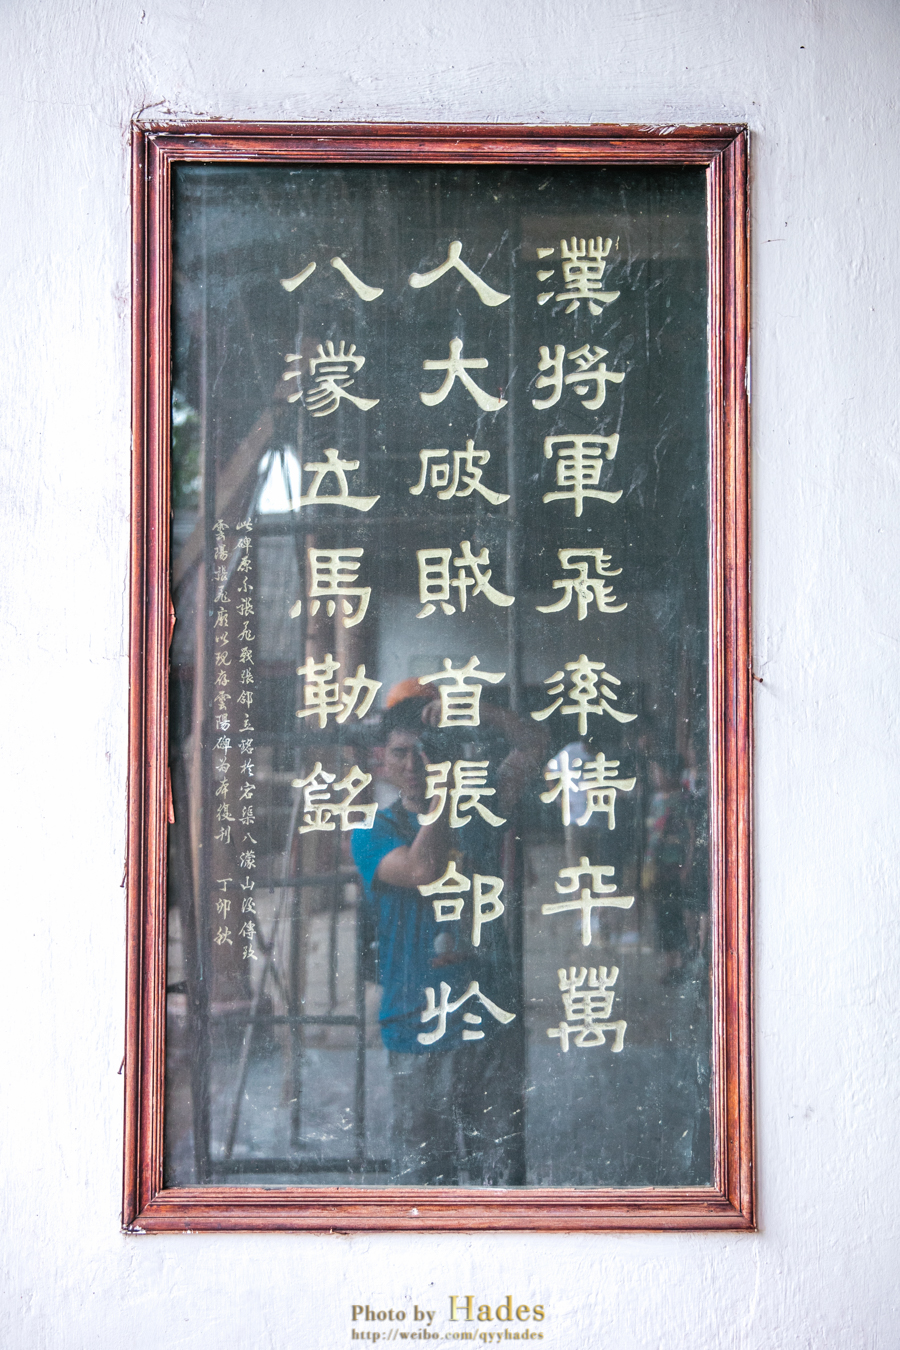 漢將軍飛率精卒萬
人大破賊首張郃於
八濛立馬勒銘
此碑原系張飛戰張郃立銘於宕渠八濛山後傳玫
雲陽張飛廟以現存雲陽碑為本復刊 丁卯秋
Photo by Hades
http://weibo.com/qyyhades